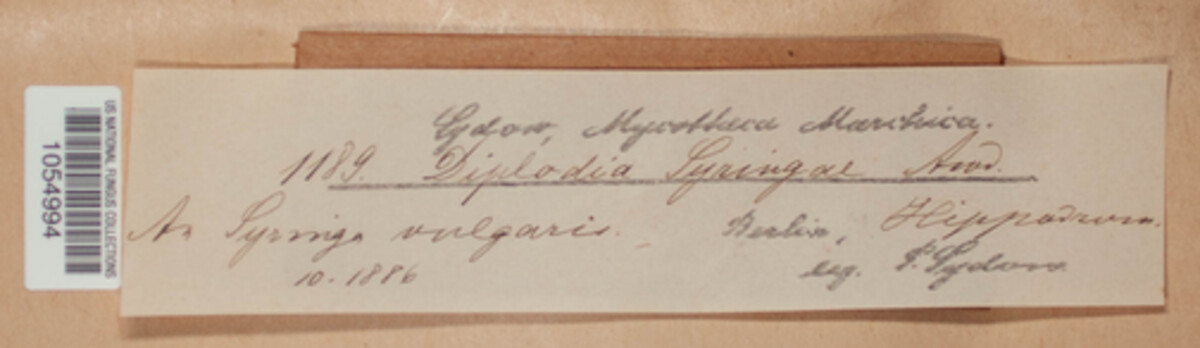 US NATIONAL FUNGUS COLLECTIONS
1054994
Sydow, Mycotheca Marchica.
1189. Diplodia Syringae Awd.
An Syringa vulgaris. Berlin, Hippodrom.
10. 1886 leg. P. Sydow